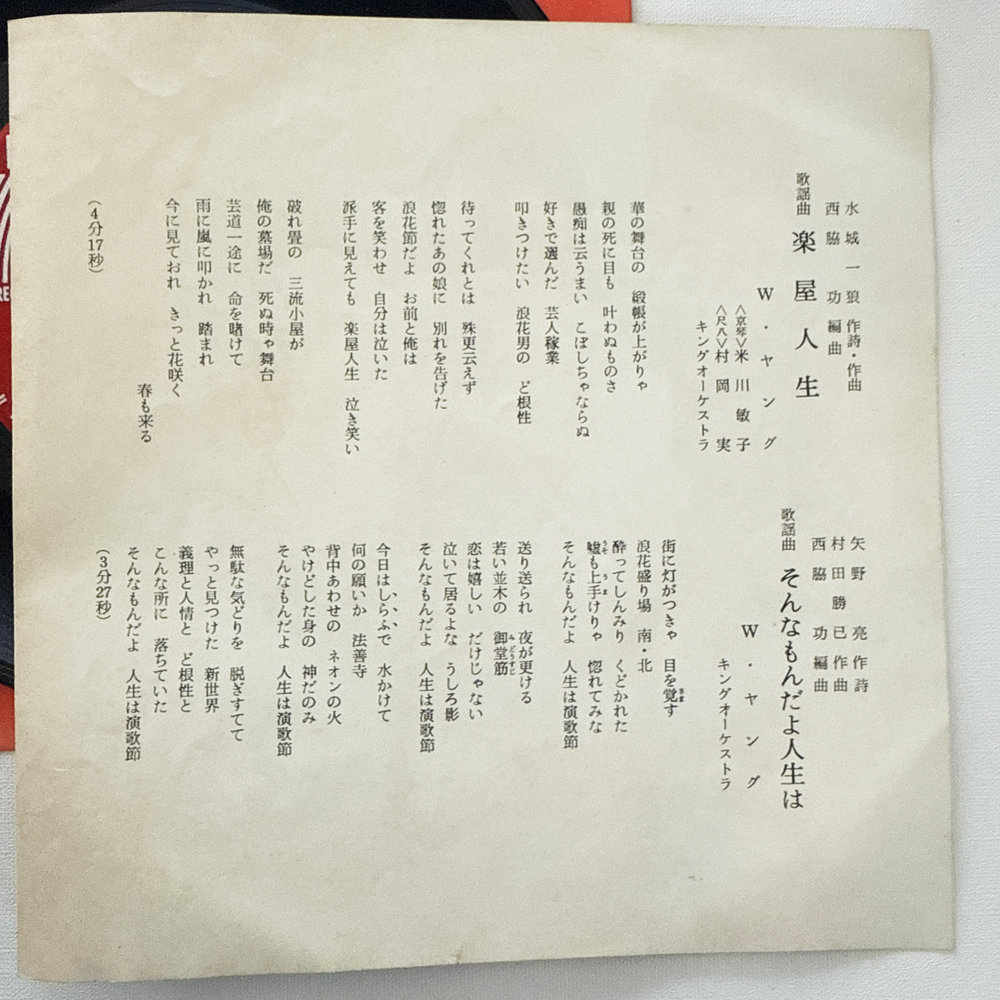 水城一狼 作詩・作曲
西脇功 編曲
歌謡曲 楽屋人生
W・ヤング
〈京琴〉米川敏子
〈尺八〉村岡実
キングオーケストラ
華の舞台の 緞帳が上がりゃ
親の死に目も 叶わぬものさ
愚痴は云うまい こぼしちゃならぬ
好きで選んだ 芸人稼業
叩きつけたい 浪花男の ど根性
待ってくれとは 殊更云えず
惚れたあの娘に 別れを告げた
浪花節だよ お前と俺は
客を笑わせ 自分は泣いた
派手に見えても 楽屋人生 泣き笑い
破れ畳の 三流小屋が
俺の墓場だ 死ぬ時ゃ舞台
芸道一途に 命を賭けて
雨に嵐に叩かれ 踏まれ
今に見ておれ きっと花咲く
春も来る
(4分17秒)
矢野亮 作詩
村田勝已 作曲
西脇功 編曲
歌謡曲 そんなもんだよ人生は
W・ヤング
キングオーケストラ
街に灯がつきゃ 目を覚す
浪花盛り場 南・北
酔ってしんみり くどかれた
嘘も上手けりゃ 惚れてみな
そんなもんだよ 人生は演歌節
送り送られ 夜が更ける
若い並木の 御堂筋
恋は嬉しい だけじゃない
泣いて居るよな うしろ影
そんなもんだよ 人生は演歌節
今日はしらふで 水かけて
何の願いか 法善寺
背中あわせの ネオンの火
やけどした身の 神だのみ
そんなもんだよ 人生は演歌節
無駄な気どりを 脱ぎすてて
やっと見つけた 新世界
義理と人情と ど根性と
こんな所に 落ちていた
そんなもんだよ 人生は演歌節
(3分27秒)